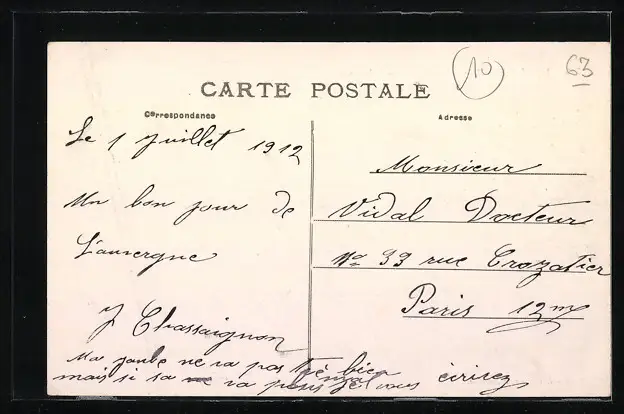 CARTE POSTALE
Correspondance
Adresse
10
63
Le 1 Juillet 1912
Un bon jour de
L'auvergne
J Chassaignon
Ma jambe ne va pas très bien
mais si sa va plus vous écrirez
Monsieur
Vidal Docteur
No 39 rue Crozatier
Paris 12me